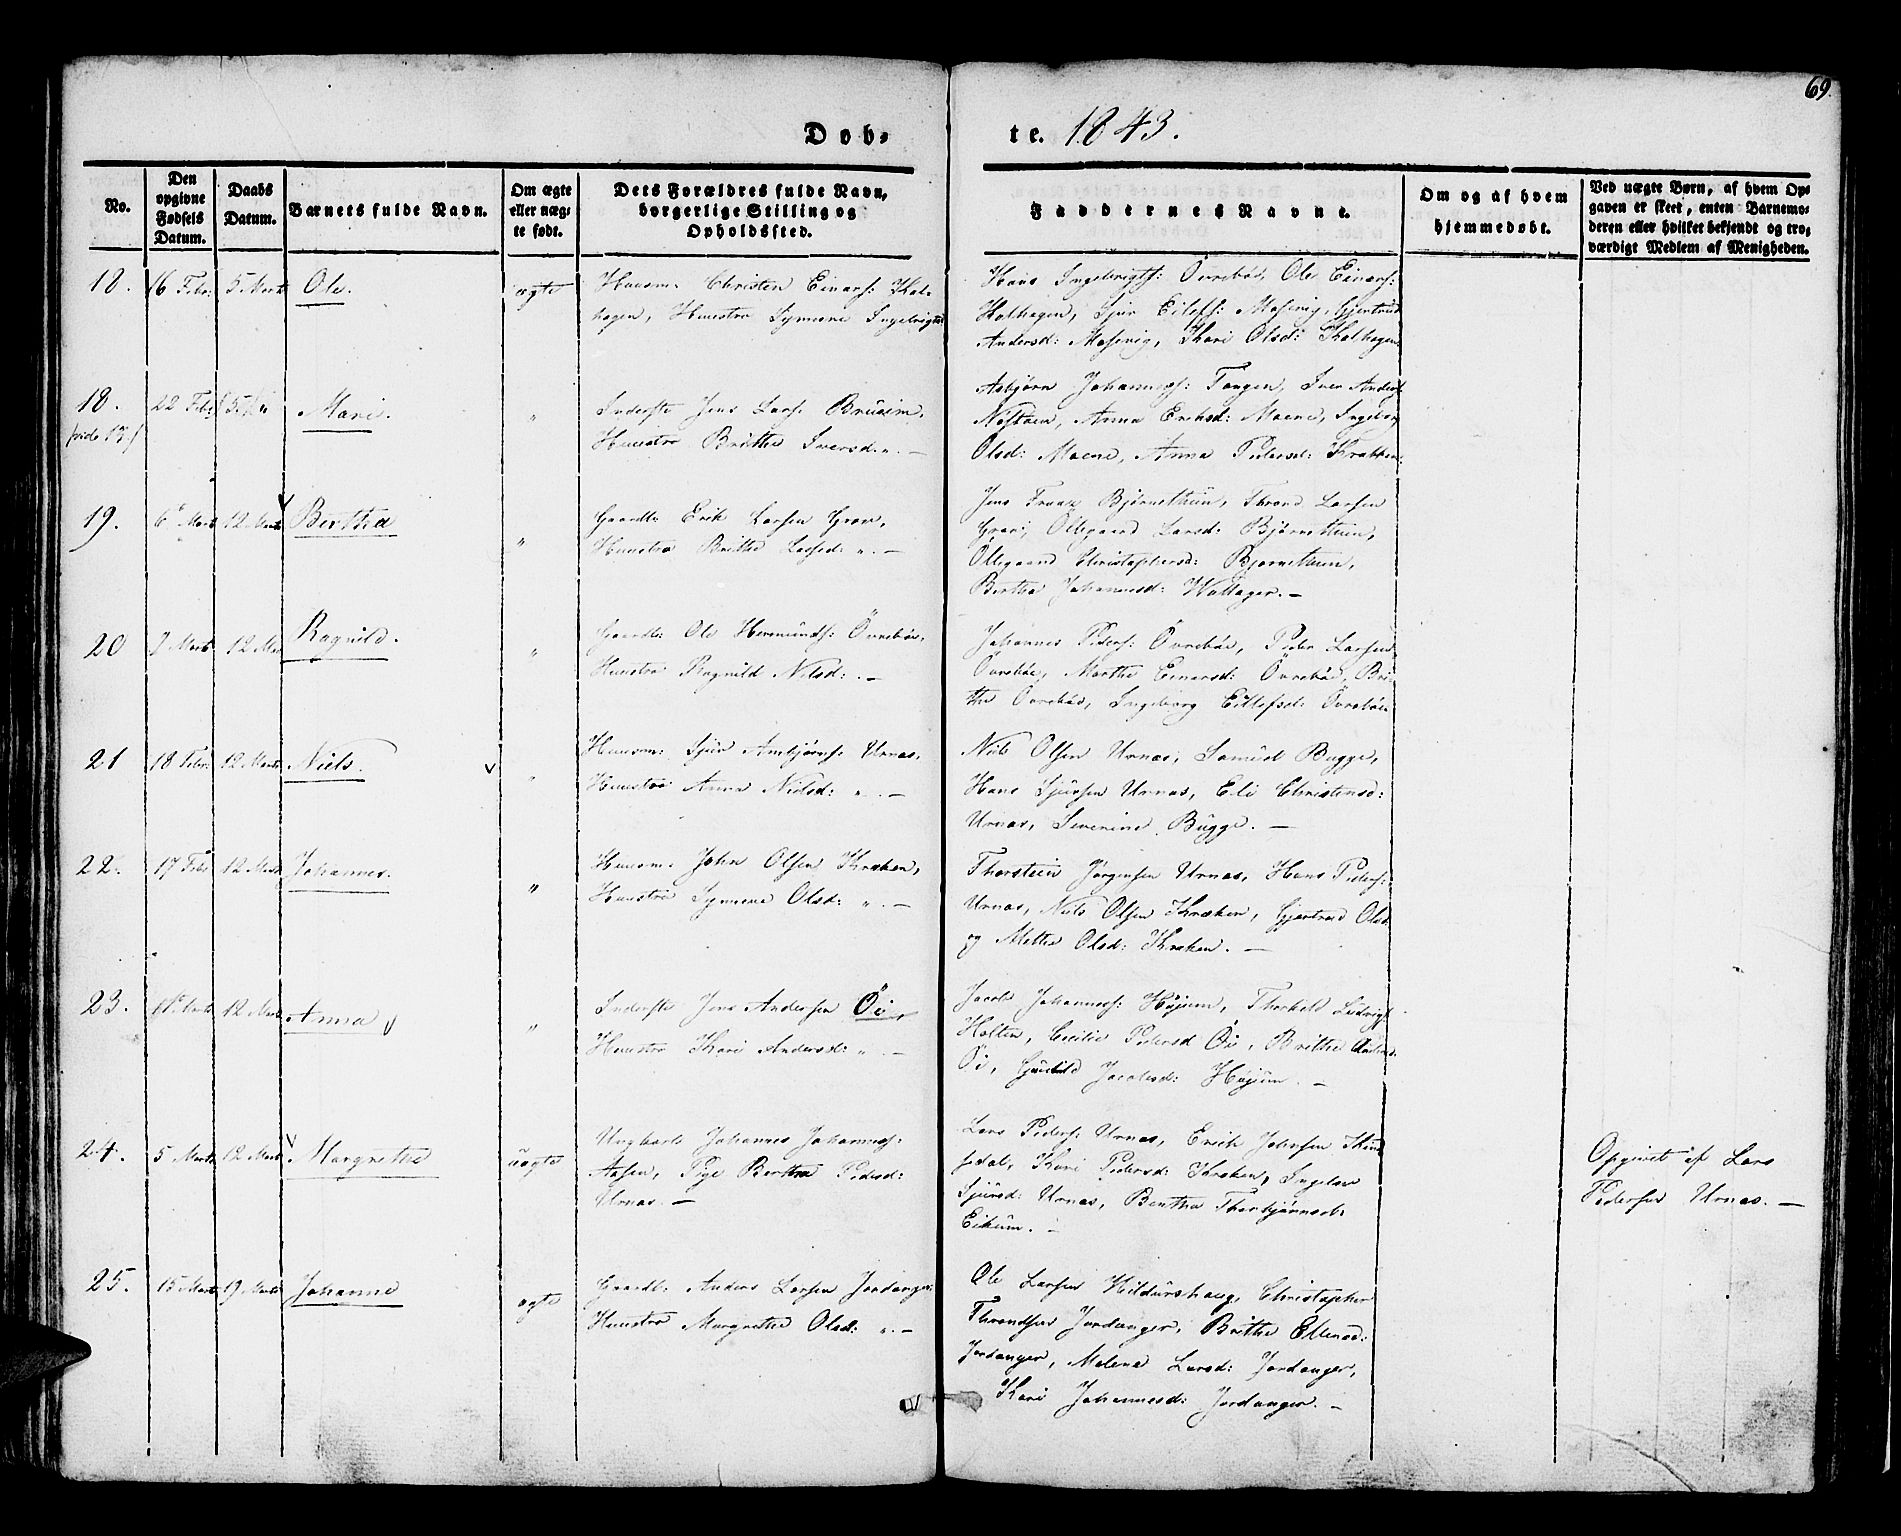 69.
Døb-
te. 1843.
No.
Den opgivne Fødsels Datum.
Daabs Datum.
Barnets fulde Navn.
Om ægte eller uægte født.
Dets Forældres fulde Navn, borgerlige Stilling og Opholdssted.
Faddernes Navne.
Om og af hvem hjemmedøbt.
Ved uægte Børn, af hvem Opgaven er skeet, enten Barnemoderen eller hvilket bekjendt og troværdigt Medlem af Menigheden.
18. 16 Febr: 5 Marts Ole. ægte
Huusm: Christen Einars: Kal-
hagen, Huustro Synneve Ingebrigtsd:
Hans Ingebrigts: Övreböe, Ole Einars:
Kalhagen, Sjur Eilefs: Mosevig, Gjertrud
Andersd: Mosevig, Kari Olsd: Kalhagen
18. 22 Febr 5 Mari. "
(vide 17)
Inderste Jens Lars: Brueim,
Huustro Brithe Iversd: ". —
Asbjørn Johanness: Tangen, Iver Anders:
Anna Eriksd: Moene, Ingeborg
Olsd: Moene, Anna Pedersd: Krakken.
19. 6 Marts 12 Marts Bertha "
Gaardb: Erik Larsen Grov,
Huustro Brithe Lassed: ". —
Jens Bjørnethun, Thrond Larsen
Grov, Ollegaard Larsd: Bjørnethun,
Ollegaard Christophersd: Bjørnethun,
Bertha Johannesd: Wattager. —
20 7 Marts 12 Mar Ragnild. "
Gaardb: Ole Hermunds: Övreböe,
Huustro Ragnild Nilsd: . —
Johannes Peders: Övreböe, Peder Larsen
Övreböe, Marthe Einarsd: Övrebøe, Bri-
the Övrebøe, Ingeborg Eillefsd: Övrebøe
21 18 Febr. 12 Marts Niels. "
Huusm: Sjur Ambjørns: Urnæs,
Huustro Anna Nielsd: ". —
Niels Olsen Urnæs, Samuel Bugge,
Hans Sjursen Urnæs, Eli Christensd:
Urnæs, Severine Bugge. —
22. 17 Febr 12 Marts Johannes. "
Huusm: John Olsen Kroken,
Huustro Synneve Olsd: ". —
Thorstein Jørgensen Urnæs, Hans Peders:
Urnæs, Niels Olsen Kroken, Gjertrud Olsd:
og Mette Olsd: Kroken. —
23. 11 Marts 12 Marts Anna "
Inderste Jens Andersen Öi,
Huustro Kari Andersd: ". —
Jacob Johanness: Høyum, Thorkeld Ludvigs:
Holten, Cecilie Pedersd Öi, Brithe Anders:
Öi, Gunild Jacobsd: Høyum. —
24. 5 Marts 12 Marts Margrethe uægte
Ungkarl Johannes Johanness:
Aasen, Pige Bertha Pedersd:
Urnæs. —
Lars Peders: Urnæs, Erich Johnsen
Kari Pedersd: Kroken, Ingeborg
Sjursd: Urnæs, Bertha Thorbjørnsd:
Eikum. —
Opgivet af Lars
Pedersen Urnæs. —
25. 15 Marts 19 Marts Johanne ægte
Gaardb: Anders Larsen Jordanger,
Huustro Margrethe Olsd: ". —
Ole Larsen Hildurshaug, Christopher
Throndsen Jordanger, Brithe Ellensd:
Jordanger, Malene Larsd: Jordanger,
Kari Johannesd: Jordanger. —